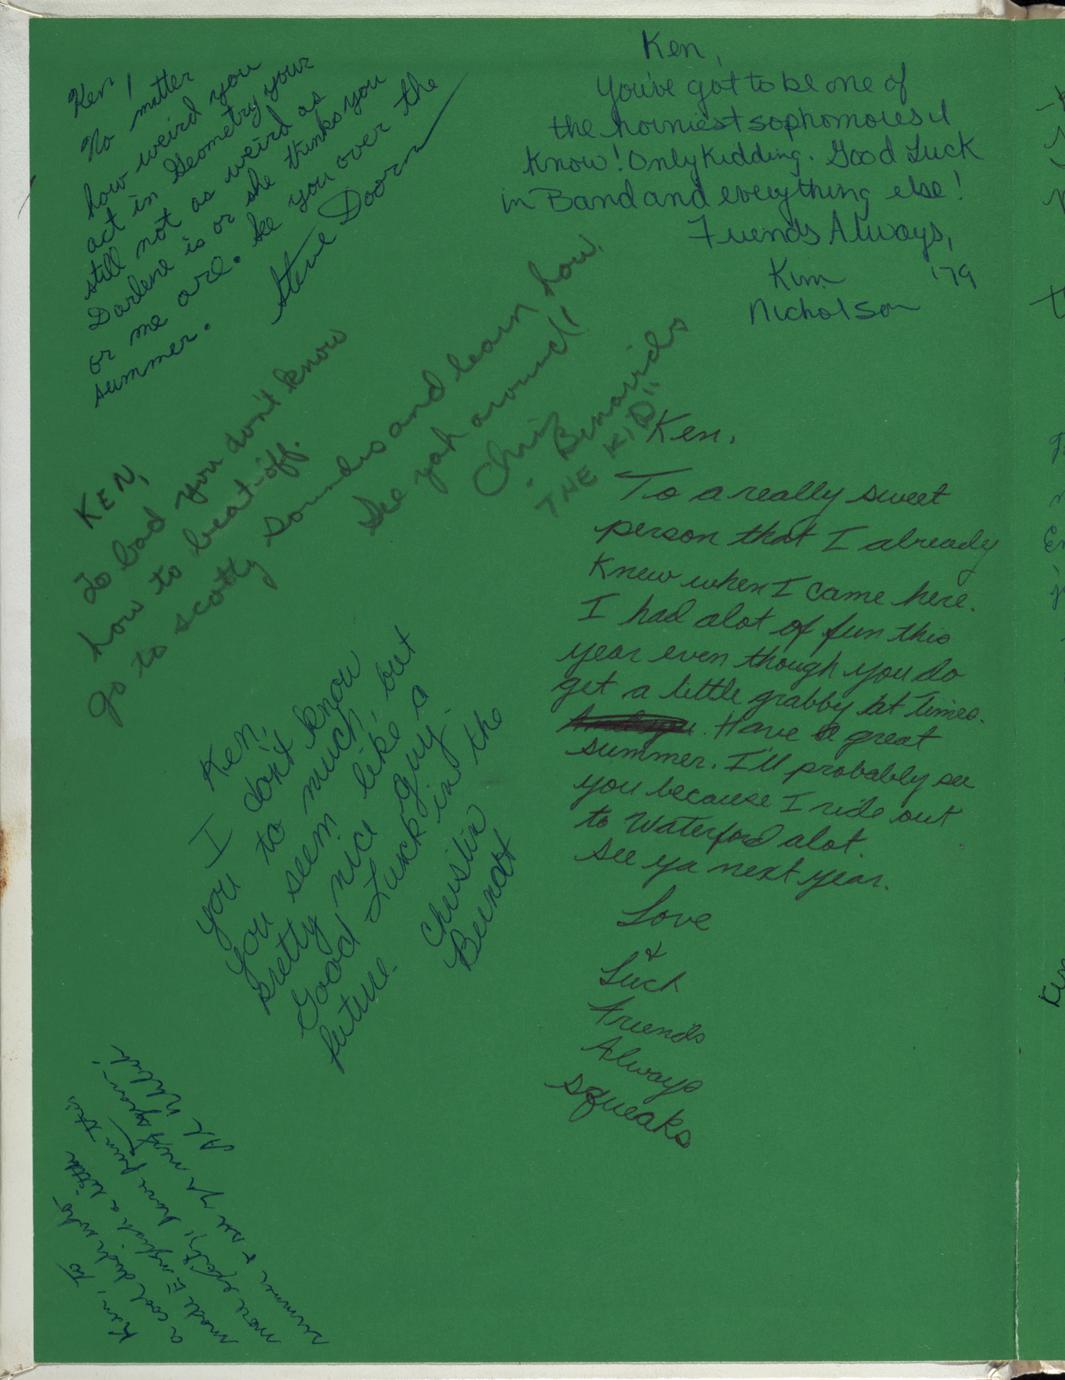 Ken,
No matter
how weird you
act in Geometry your
still not as weird as
Darlene is or she thinks you
or me are. See you over the
summer.
Steve Doorn
Ken,
You've got to be one of
the horniest sophomores I
know! Only kidding. Good Luck
in Band and everything else!
Friends Always,
Kim '79
Nicholson
KEN,
To bad you don't know
how to beat-off.
go to scotty Soundis and learn how.
See yah around!!
Chris
Benavids
"THE KID"
Ken,
To a really sweet
person that I already
knew when I came here.
I had alot of fun this
year even though you do
get a little grabby at times.
Have a great
summer. I'll probably see
you because I ride out
to Waterford alot.
See ya next year.
Love
&
Luck
Friends
Always
Squeaks
Ken,
I don't know
you to much, but
you seem like a
pretty nice guy.
Good Luck in the
future.
Christin
Berndt
Ken, To
a cool dude who
made English a little
more spifty, have fun this
summer & see ya next year!